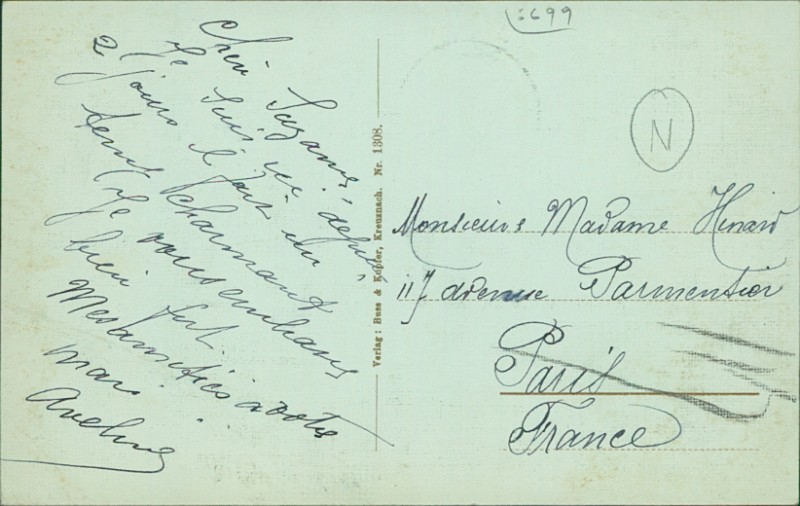 Chère Suzanne
Je suis ici depuis
2 jours il fait un
temps charmant
Je vous embrasse
bien fort.
Mes amitiés à votre
mari.
Aveline
Verlag: Buss & Küpfer, Kreuznach. Nr. 1308.
699
N
Monsieur & Madame Henard
117 avenue Parmentier
Paris
France